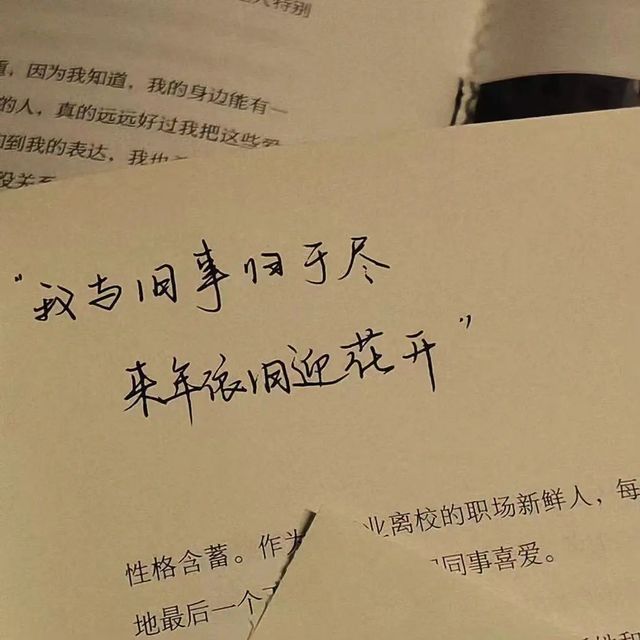 特别
因为我知道，我的身边能有一
的人，真的远远好过我把这些
到我的表达，我也
没关系
“我与旧事归于尽
来年依旧迎花开”
业离校的职场新鲜人，每
性格含蓄。作为
同事喜爱。
地最后一个